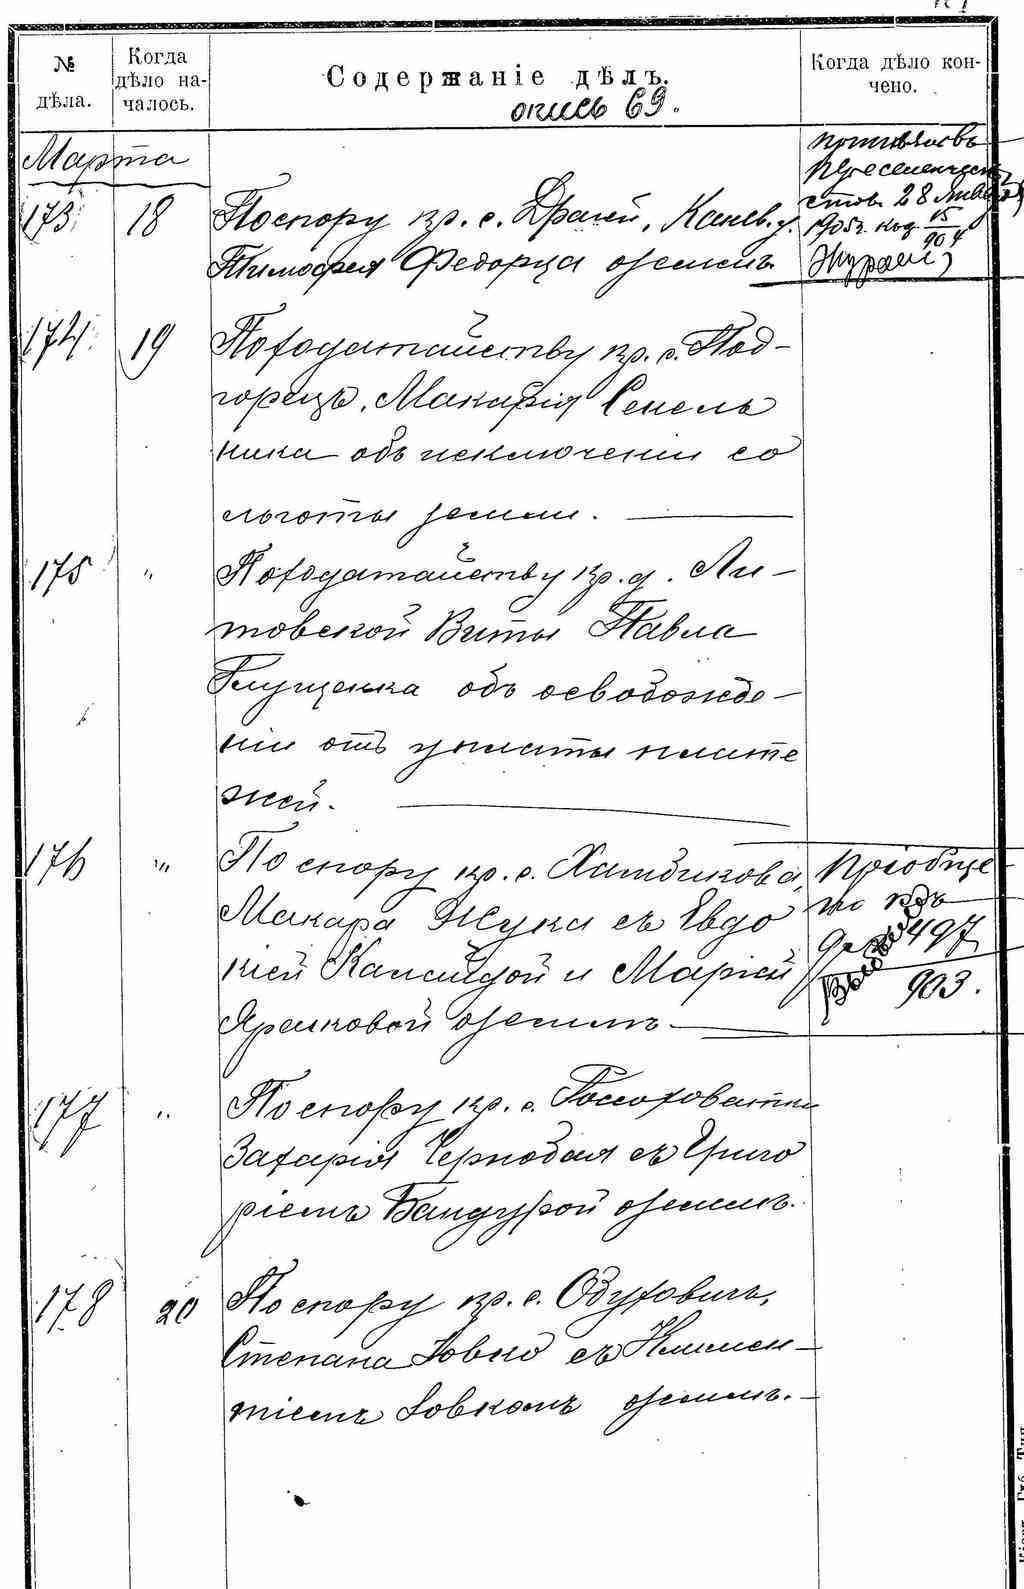 № дѣла.
Когда дѣло на-
чалось.
Содержаніе дѣлъ.
опись 69.
Когда дѣло кон-
чено.
Марта
173 18 По спору кр. с. Драчей, Канев. у.
Тимофея Федорца о землѣ
28 Января
1905 г.
15
904
174 19 По ходатайству кр. с. Под-
горецъ, Макарія Сенель
ника объ исключеніи со
льготы земли.
175 " По ходатайству кр. д. Ли-
товской Виты Павла
Глущенка объ освобожде-
ніи отъ уплаты плате
жей.
176 " По спору кр. с.
Макара Жука съ Евдо
кіей и Маріей
о землѣ
Пріобще
но къ
497
903.
177 " По спору кр. с. Россоховатки
Захарія Чернобая съ Григо
ріемъ Бандурой о землѣ.
178 20 По спору кр. с.
Степана Іовко съ Климен-
тіемъ Іовкомъ о землѣ.